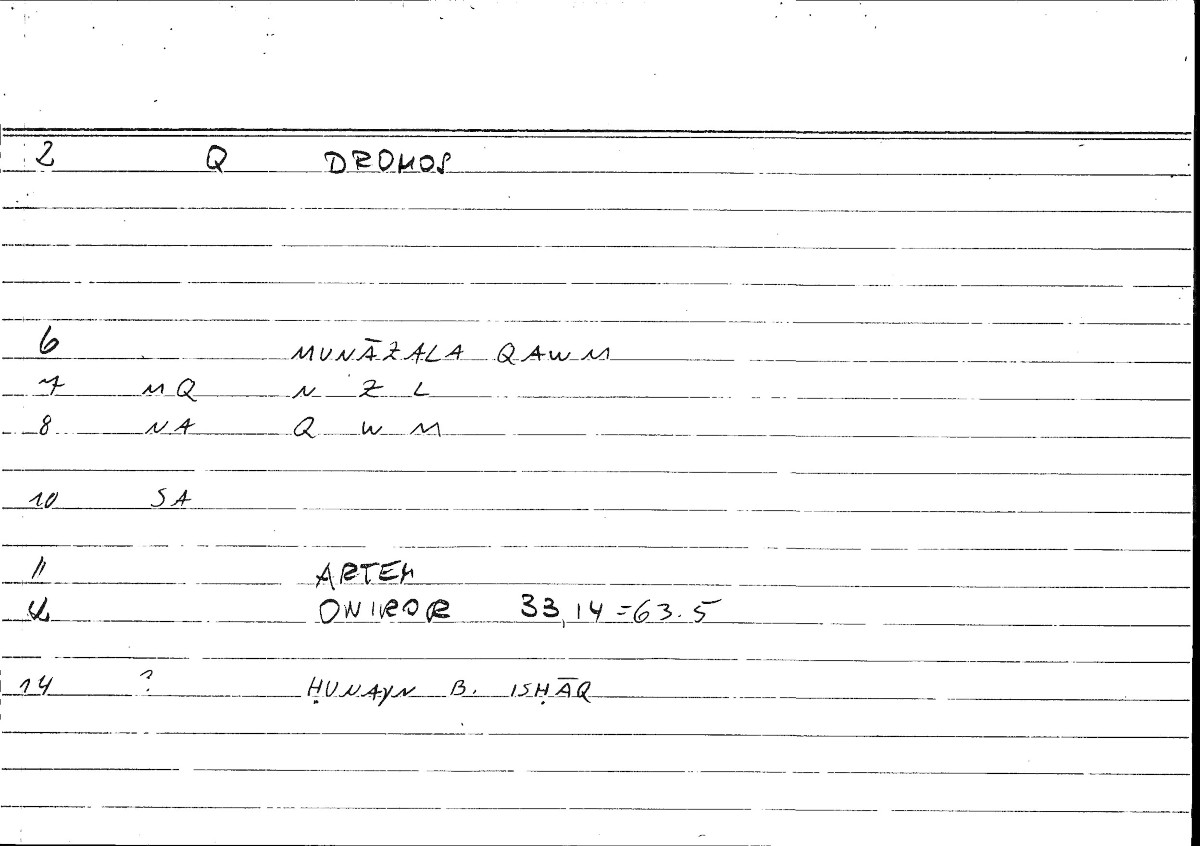 2 Q DROMOS
6 MUNĀZALA QAWM
7 MQ N Z L
8 NA Q W M
10 SA
11 ARTEM
12 ONIROR 33,14=63.5
14 ? ḤUNAYN B. ISḤĀQ